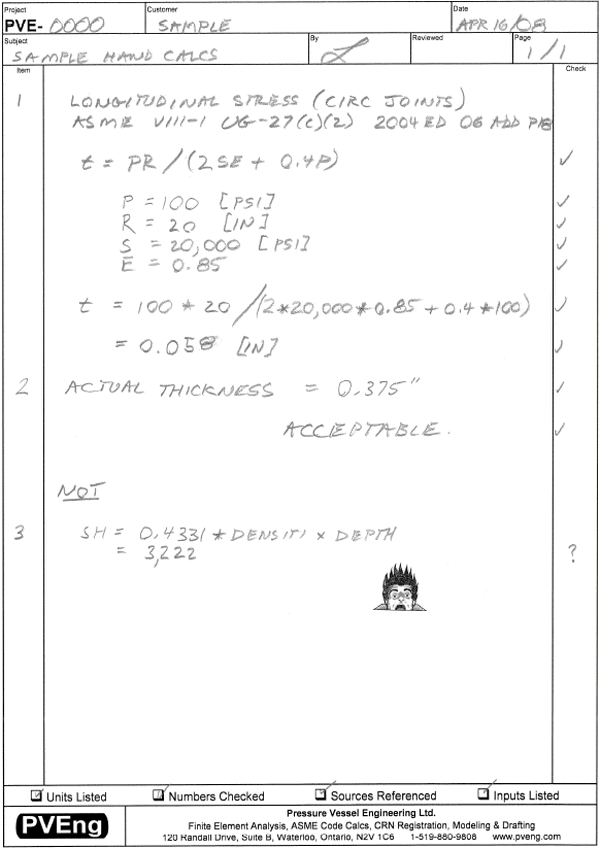 Project
PVE-0000
Customer
SAMPLE
Date
APR 16/08
Subject
SAMPLE HAND CALCS
By
Reviewed
Page
1/1
Item
Check
1 LONGITUDINAL STRESS (CIRC JOINTS)
ASME VIII-1 UG-27(c)(2) 2004 ED 06 ADD
t = PR/(2SE + 0.4P) ✓
P = 100 [PSI] ✓
R = 20 [IN] ✓
S = 20,000 [PSI] ✓
E = 0.85 ✓
t = 100 * 20 /(2*20,000*0.85 + 0.4*100) ✓
= 0.058 [IN] ✓
2 ACTUAL THICKNESS = 0.375" ✓
ACCEPTABLE. ✓
NOT
3 SH = 0.4331 * DENSITY x DEPTH
= 3,222 ?
☑ Units Listed ☑ Numbers Checked ☑ Sources Referenced ☑ Inputs Listed
PVEng
Pressure Vessel Engineering Ltd.
Finite Element Analysis, ASME Code Calcs, CRN Registration, Modeling & Drafting
120 Randall Drive, Suite B, Waterloo, Ontario, N2V 1C6 1-519-880-9808 www.pveng.com